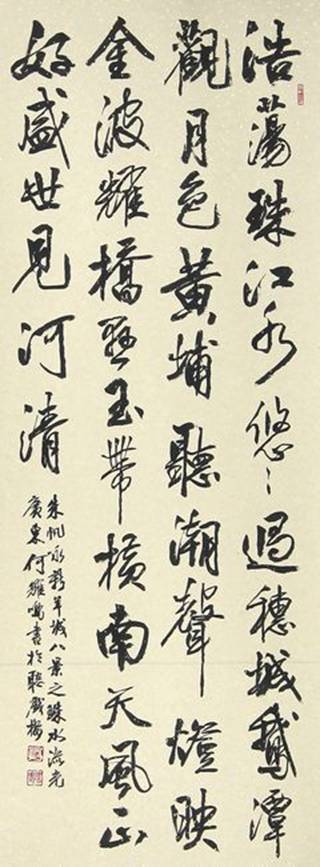 浩蕩珠江水悠〻過穗城鵝潭
觀月色黃埔聽潮聲燈映
金波耀橋懸玉帶橫南天風正
好盛世見河清
朱帆詠新羊城八景之珠水流光
廣東何鳴書於樓